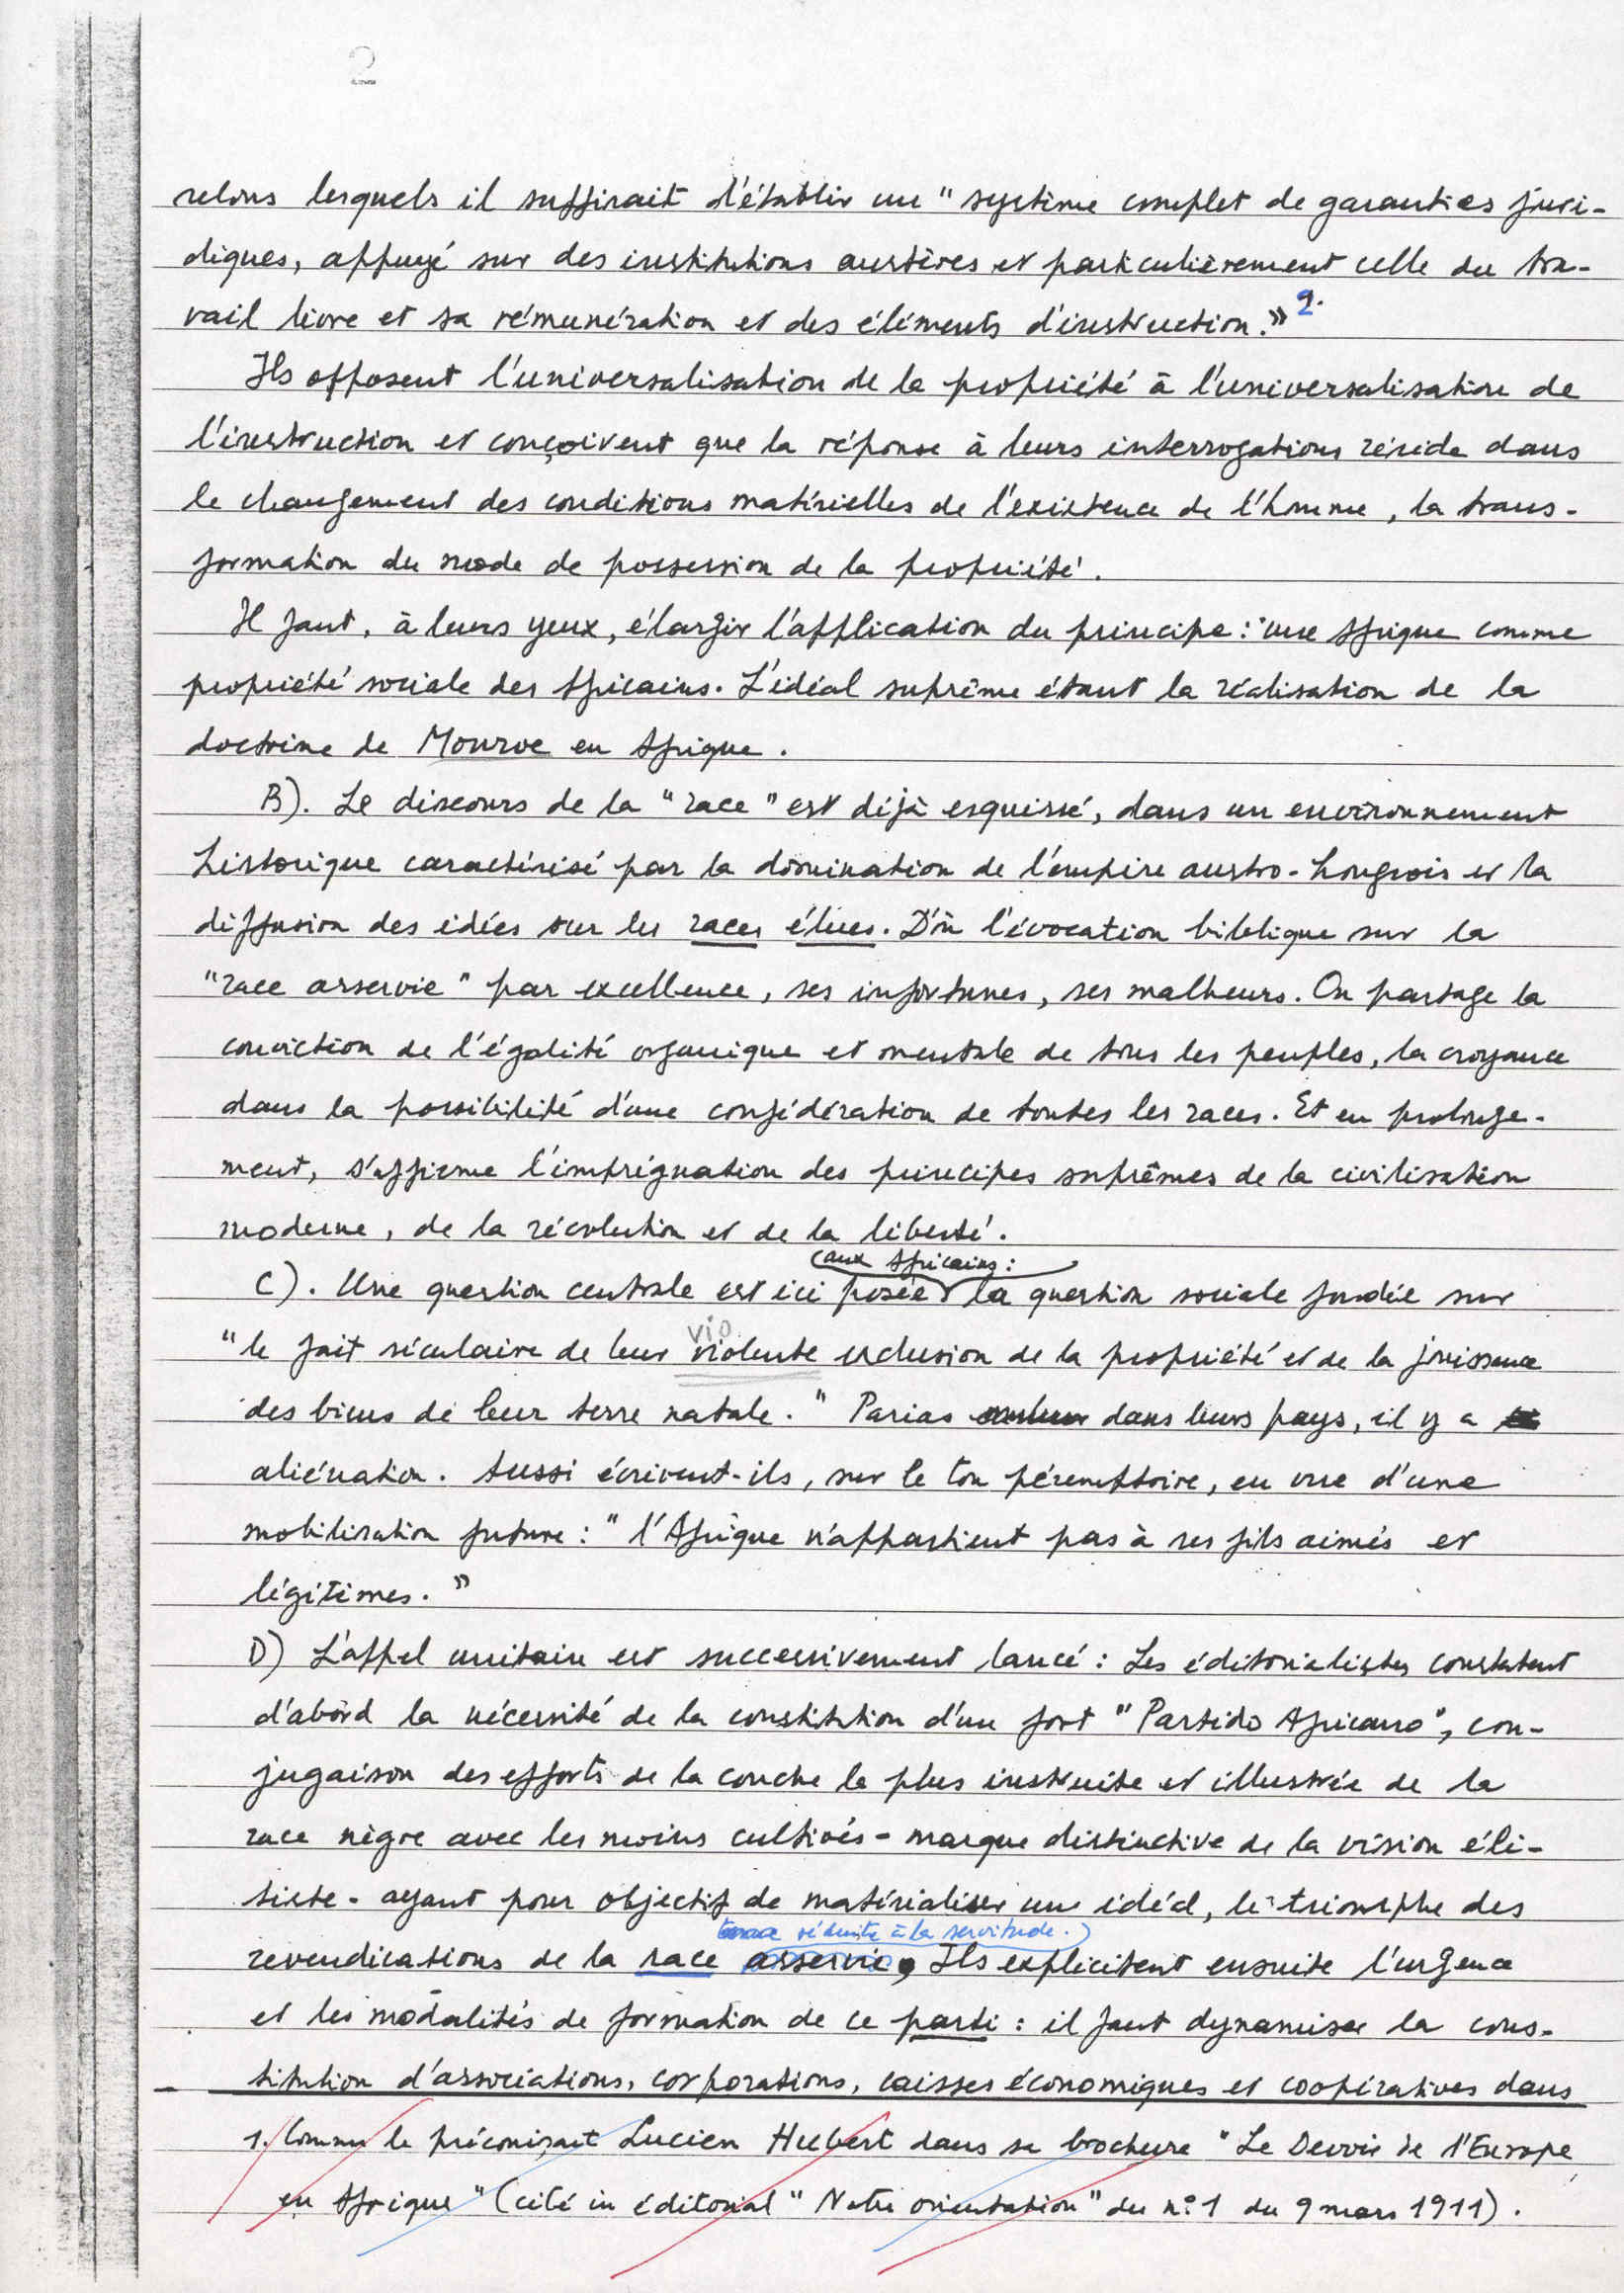 2
selons lesquels il suffirait d'établir un "système complet de garanties juri-
diques, appuyé sur des institutions austères et particulièrement celle du tra-
vail livre et sa rémunération et des éléments d'instruction.» 2.
Ils opposent l'universalisation de la propriété à l'universalisation de
l'instruction et conçoivent que la réponse à leurs interrogations réside dans
le changement des conditions matérielles de l'existence de l'homme, la trans-
formation du mode de possession de la propriété.
Il faut, à leurs yeux, élargir l'application du principe: une Afrique comme
propriété sociale des Africains. L'idéal suprême étant la réalisation de la
doctrine de Monroe en Afrique.
B). Le discours de la "race" est déjà esquissé, dans un environnement
historique caractérisé par la domination de l'empire austro-hongrois et la
diffusion des idées sur les races élues. D'où l'évocation biblique sur la
"race asservie" par excellence, ses infortunes, ses malheurs. On partage la
conviction de l'égalité organique et mentale de tous les peuples, la croyance
dans la possibilité d'une confédération de toutes les races. Et en prolonge-
ment, s'affirme l'imprégnation des principes suprêmes de la civilisation
moderne, de la révolution et de la liberté.
aux Africains:
C). Une question centrale est ici posée la question sociale fondée sur
vio
"le fait séculaire de leur violente exclusion de la propriété et de la jouissance
des biens de leur terre natale." Parias dans leurs pays, il y a
aliénation. Aussi écrivent-ils, sur le ton péremptoire, en vue d'une
mobilisation future: "l'Afrique n'appartient pas à ses fils aimés et
légitimes.»
D) L'appel unitaire est successivement lancé: Les éditorialistes constatent
d'abord la nécessité de la constitution d'un fort "Partido Africano", con-
jugaison des efforts de la couche la plus instruite et illustrée de la
race nègre avec les moins cultivés - marque distinctive de la vision éli-
tiste - ayant pour objectif de matérialiser un idéal, le triomphe des
réduite à la servitude.
revendications de la race asservie, Ils explicitent ensuite l'urgence
et les modalités de formation de ce parti: il faut dynamiser la cons-
titution d'associations, corporations, caisses économiques et coopératives dans
1. Comme le préconisait Lucien Hubert dans sa brochure "Le Devoir de l'Europe
en Afrique" (cité in éditorial "Notre orientation" du n°1 du 9 mars 1911).